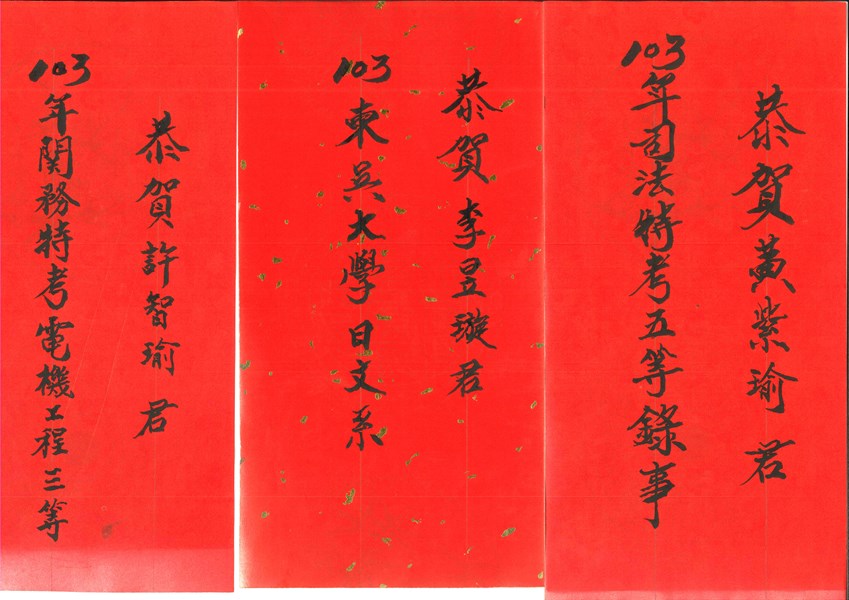 恭賀黃紫瑜君
103年司法特考五等錄事
恭賀李昱璇君
103東吳大學日文系
恭賀許智瑜君
103年関務特考電機工程三等